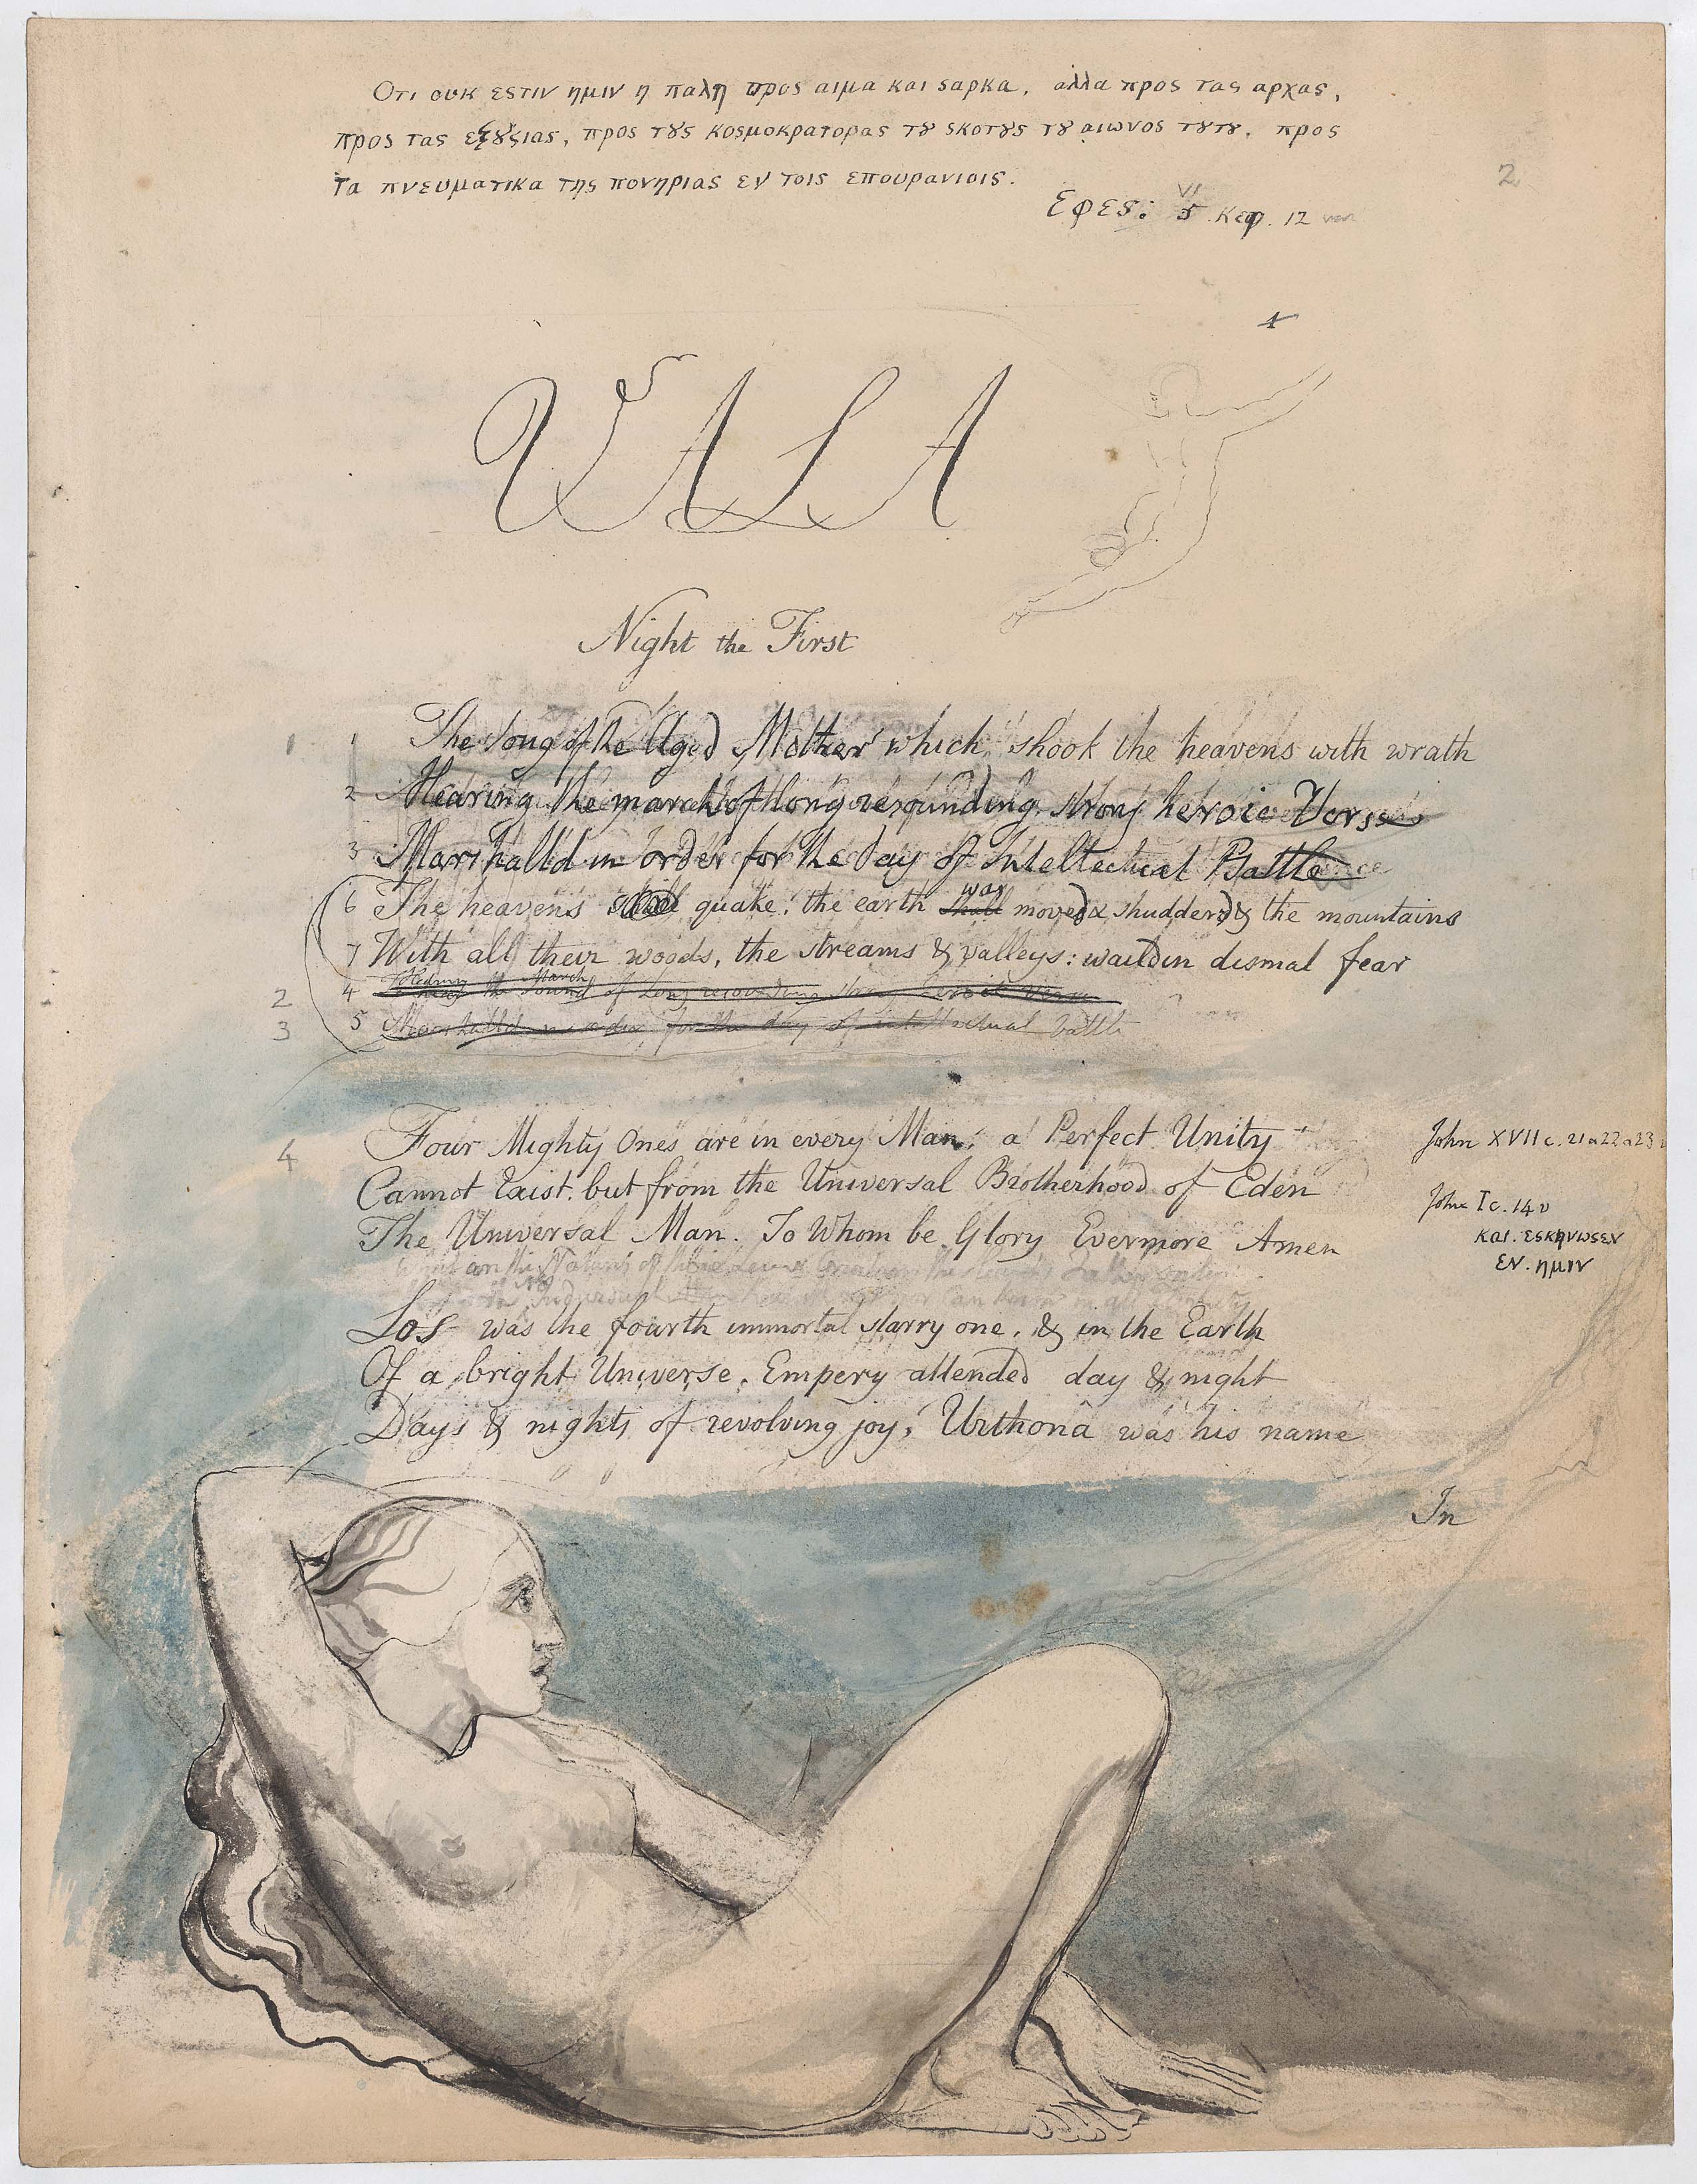 Οτι ουκ εστιν ημιν η παλη προς αιμα και σαρκα, αλλα προς τας αρχας,
προς τας εξȣσιας, προς τȣς κοσμοκρατορας τȣ σκοτȣς τȣ αιωνος τȣτȣ, προς
τα πνευματικα της πονηριας εν τοις επουρανιοις.
Εφες: VI 5 κεφ. 12 ver
2
1
VALA
Night the First
1 1 The Song of the Aged Mother which shook the heavens with wrath
2 Hearing the march of long resounding strong heroic Verse
3 Marshalld in order for the day of Intellectual Battle
6 The heavens quake: the earth shall was moved & shudderd & the mountains
7 With all their woods, the streams & valleys: waild in dismal fear
2 4 Hearing the March the Sound of Long resounding strong heroic verse
3 5 Marshalld in order for the day of intellectual battle
4 Four Mighty Ones are in every Man; a Perfect Unity John XVII c. 21 & 22 & 23 v
Cannot Exist. but from the Universal Brotherhood of Eden John I c. 14 v
The Universal Man. To Whom be Glory Evermore Amen και. εσκηνωσεν
εν. ημιν
Los was the fourth immortal starry one, & in the Earth
Of a bright Universe, Empery attended day & night
Days & nights of revolving joy, Urthona was his name
In